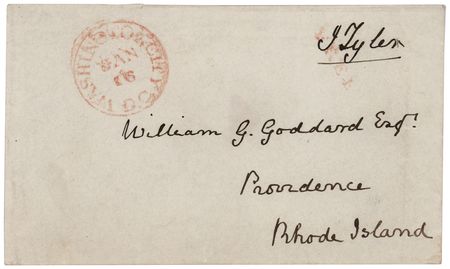 J Tyler
WASHINGTON CITY D.C.
JAN
16
FREE
William G. Goddard Esqr.
Providence
Rhode Island